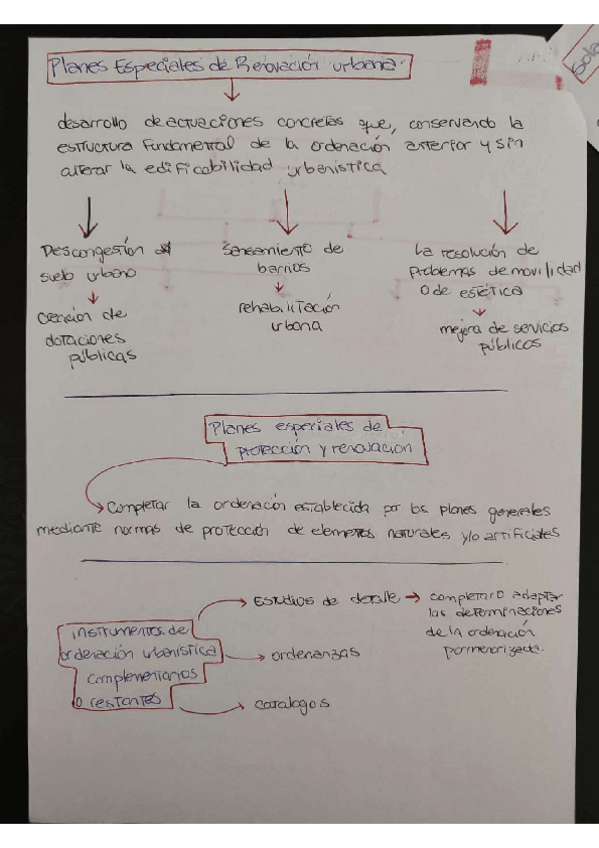 Planes Especiales de Renovación urbana.
desarrollo de actuaciones concretas que, conservando la
estructura fundamental de la ordenación anterior y sin
alterar la edificabilidad urbanística
Descongestión
suelo urbano
Creación de
dotaciones
públicas
Saneamiento de
barrios
rehabilitación
urbana
La resolución de
problemas de movilidad
o de estética
mejora de servicios
públicos
Planes especiales de
protección y renovación
Completar la ordenación establecida por los planes generales
mediante normas de protección de elementos naturales y/o artificiales
instrumentos de
ordenación urbanística
complementarios
o restantes
Estudios de detalle
completar o adaptar
las determinaciones
de la ordenación
pormenorizada.
ordenanzas
catálogos